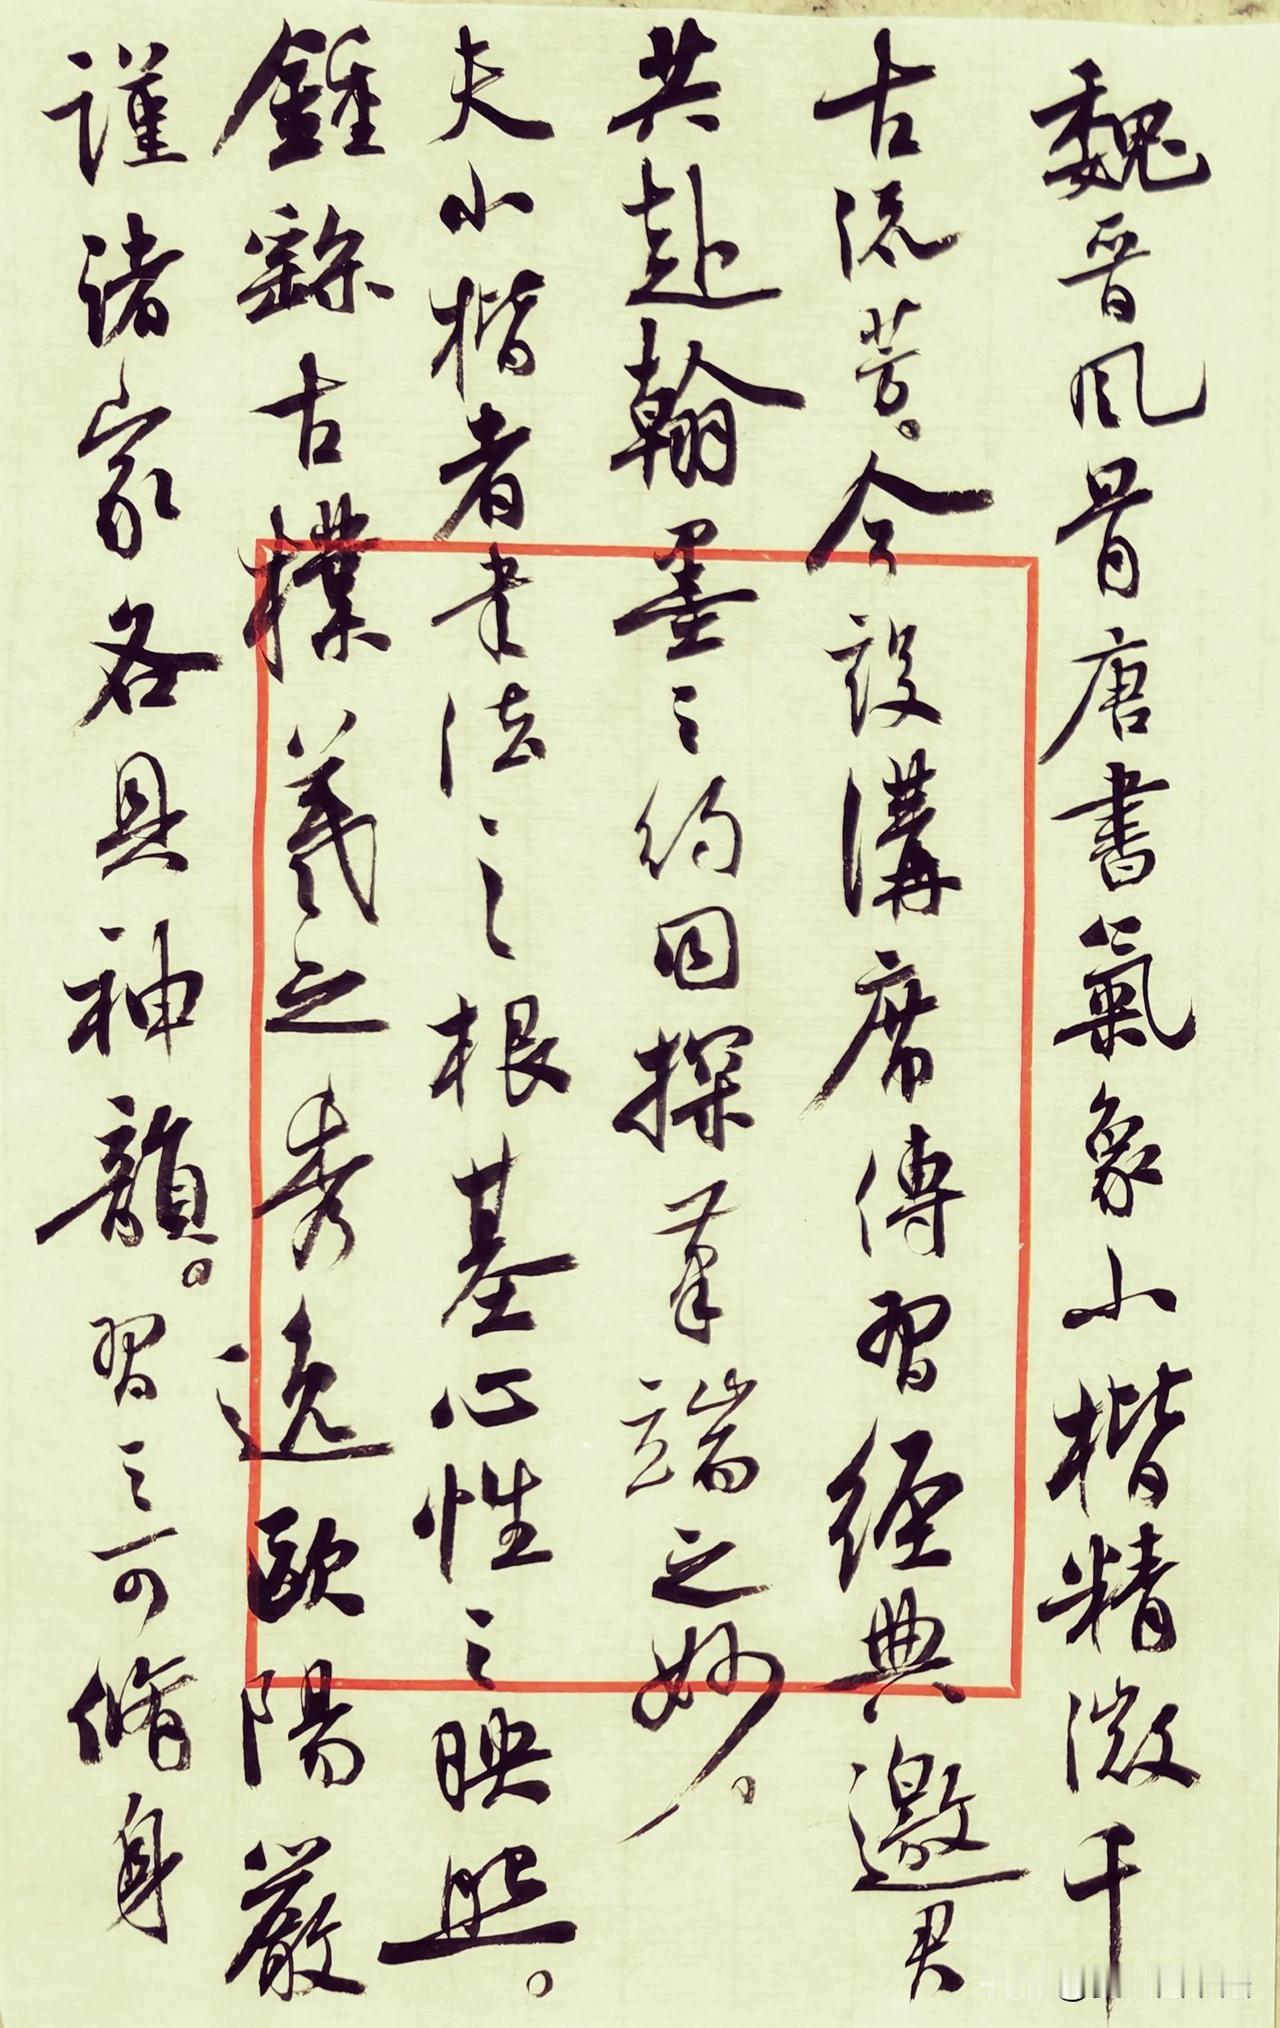 魏晋風骨唐書氣象小楷精微千
古流芳。今设講席傳習經典邀君
共赴翰墨之约同探筆端之妙。
夫小楷者书法之根基心性之映照。
鍾繇古樸羲之秀逸歐陽嚴
謹诸家各具神韻。習之可脩身